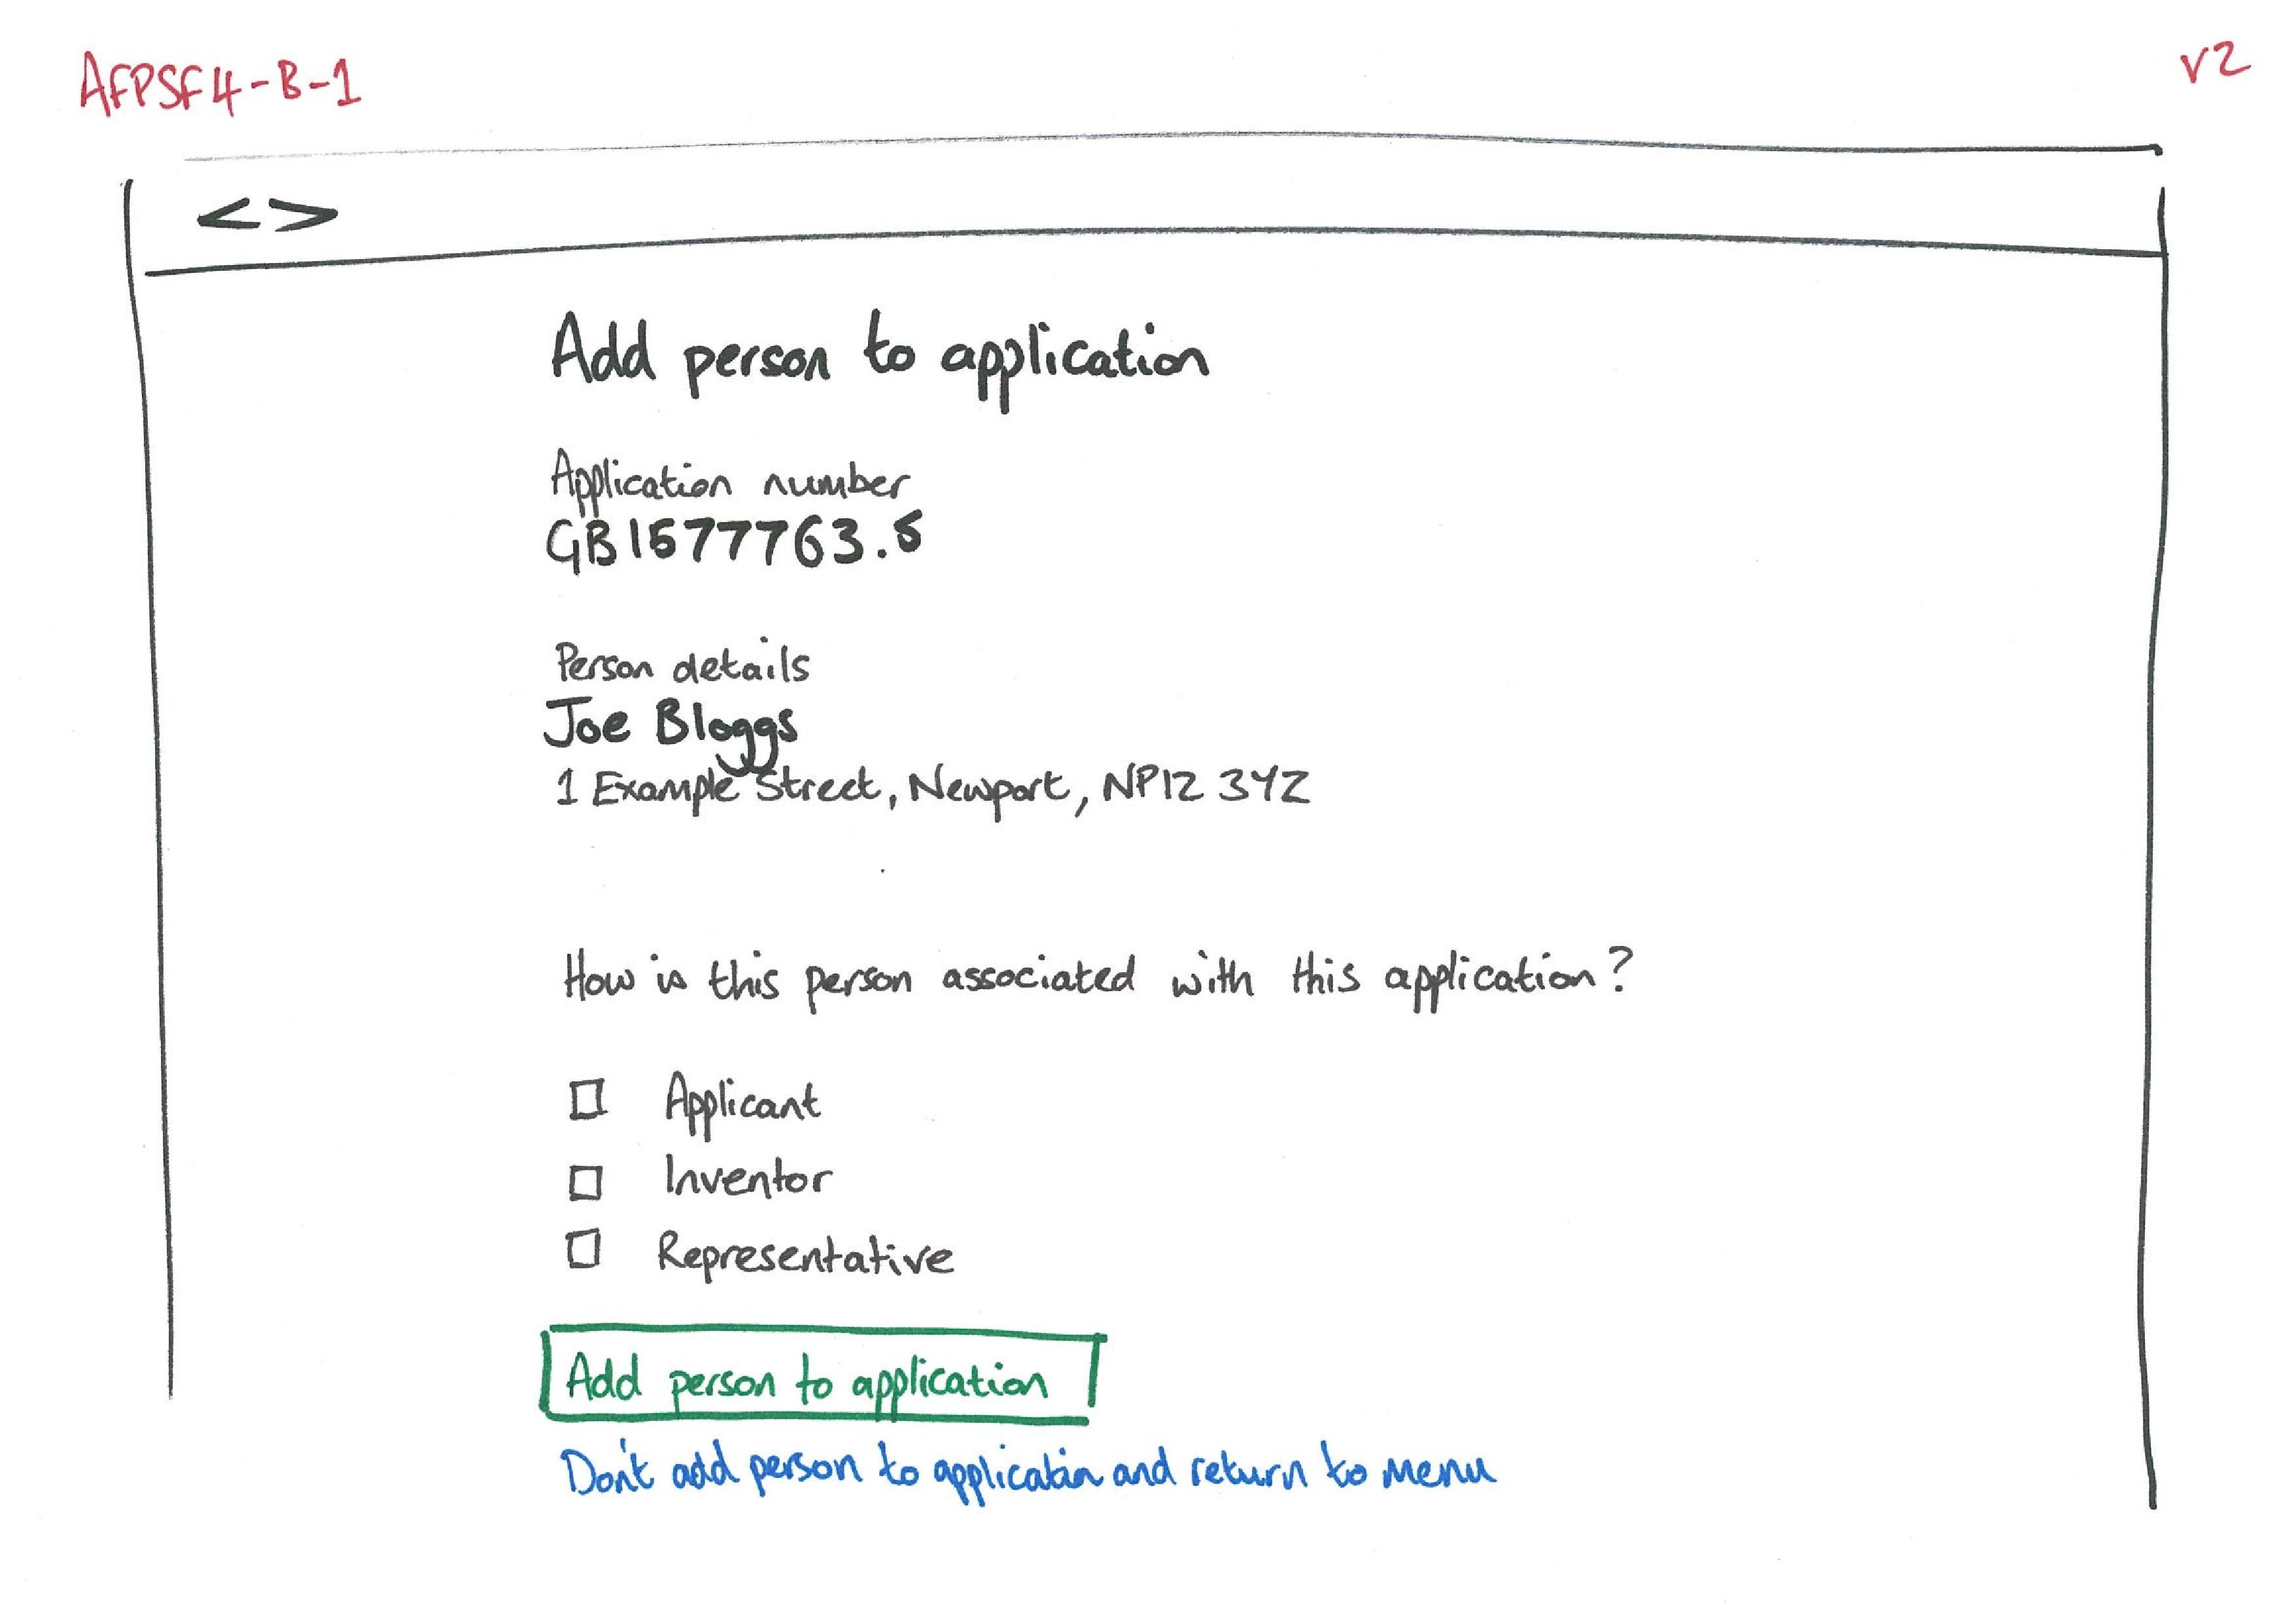 AFPSF4-B-1
v2
<>
Add person to application
Application number
GB1577763.5
Person details
Joe Bloggs
1 Example Street, Newport, NP12 3YZ
How is this person associated with this application?
Applicant
Inventor
Representative
Add person to application
Don't add person to application and return to menu